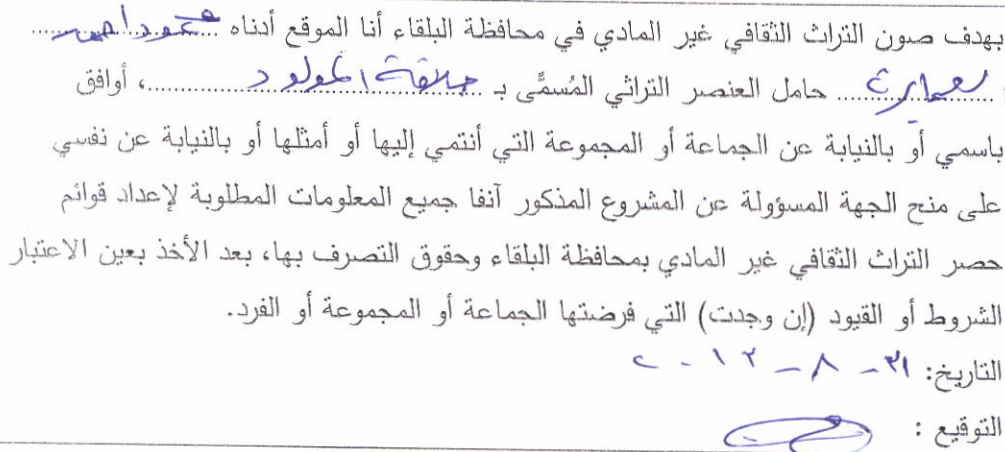 بهدف صون التراث الثقافي غير المادي في محافظة البلقاء أنا الموقع أدناه محمود احمد
حامل العنصر التراثي المُسمًّى بـ حلاقة المولود، أوافق
باسمي أو بالنيابة عن الجماعة أو المجموعة التي أنتمي إليها أو أمثلها أو بالنيابة عن نفسي
على منح الجهة المسؤولة عن المشروع المذكور آنفا جميع المعلومات المطلوبة لإعداد قوائم
حصر التراث الثقافي غير المادي بمحافظة البلقاء وحقوق التصرف بها، بعد الأخذ بعين الاعتبار
الشروط أو القيود (إن وجدت) التي فرضتها الجماعة أو المجموعة أو الفرد.
التاريخ: ٣١ - ٨ - ٢٠١٢
التوقيع :